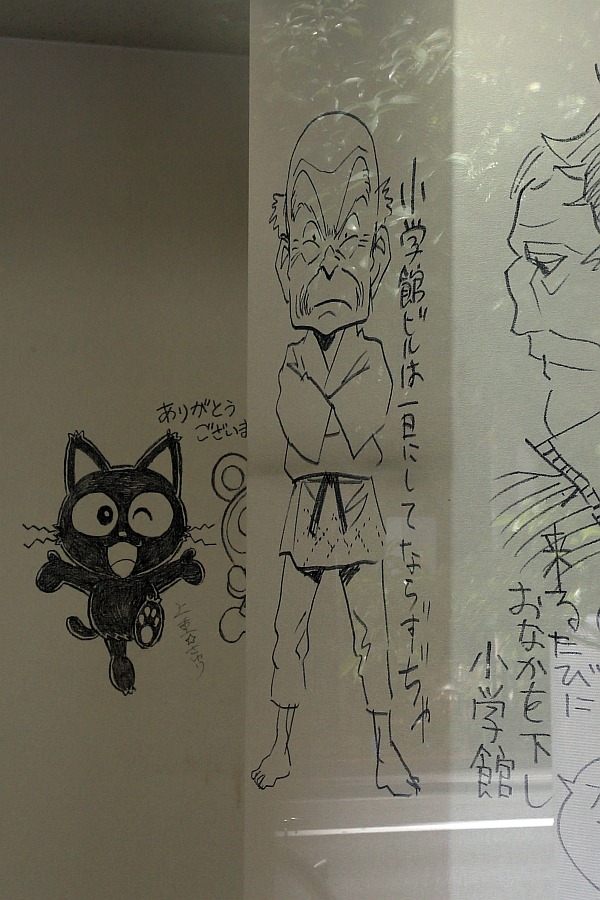 ありがとう
ございま
小学館ビルは一日にしてならずぢゃ
来るたびに
おなかを下し
小学館